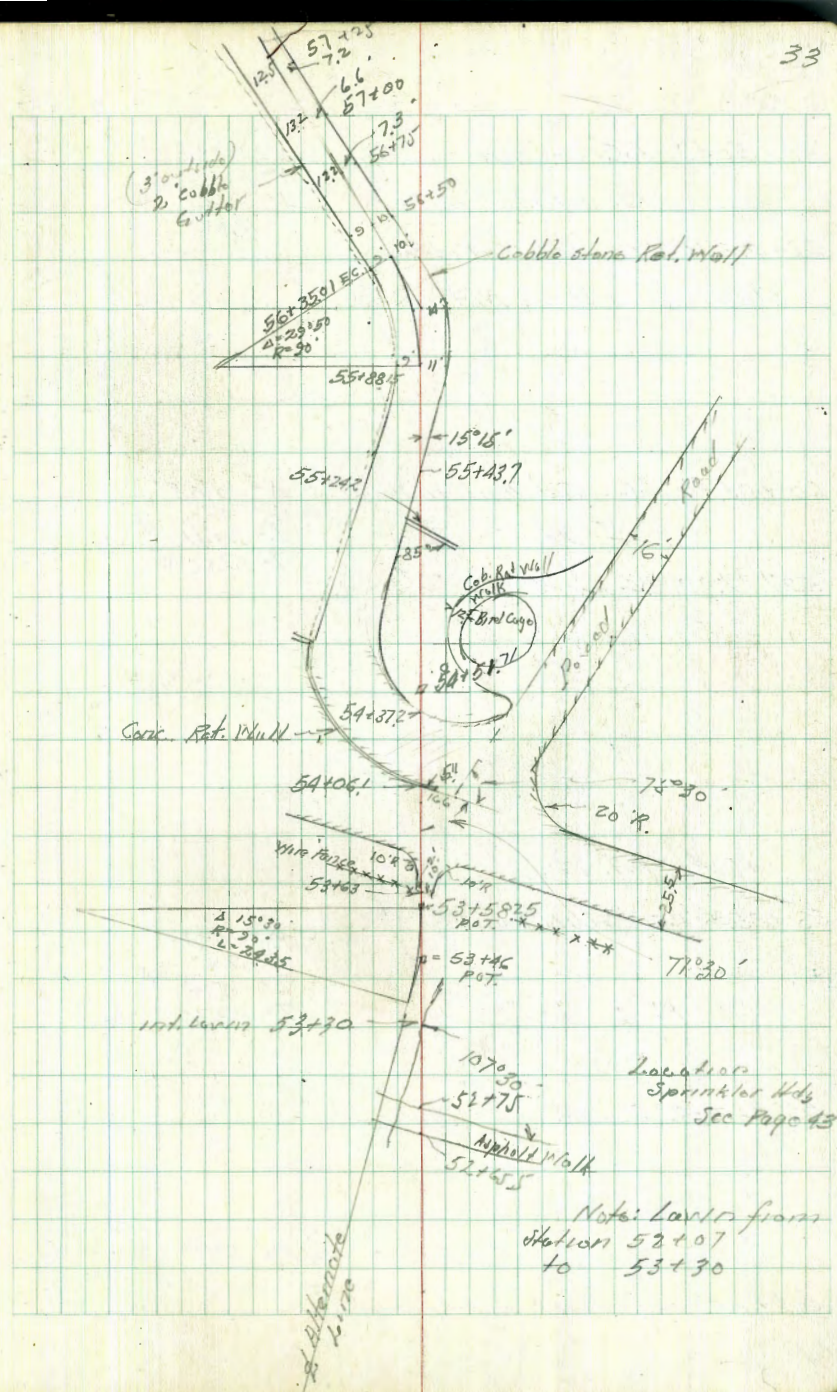 33
57+25
7.2
12.5
6.6
57+00
13.2
7.3
56+75
12.2
(3' outside)
2' cobble
Gutter
56+50
9
10
9
10'
Cobble stone Ret. Wall
56+35.01 E.C.
Δ=29°50
R=90'
9'
11'
55+88.15
15°15'
55+43.7
55+24.2
85°
Road
16'
Paved
Cob. Ret Wall
Walk
Bird Cage
54+51.71
54+37.2
Conc. Ret. Wall
54+06.1
16.6
75°30'
20'R.
Wire Fence
10'R
10'R
53+63
53+58.25
P.O.T.
25.5
71°30'
Δ 15°30
R=90'
L=24.35
53+46
P.O.T.
Int. Lawn 53+30
107°30'
52+75
Asphalt Walk
52+65.5
Location
Sprinkler Hds
See Page 43
Note: Lawn from
Station 52+07
to 53+30
Alternate
Line